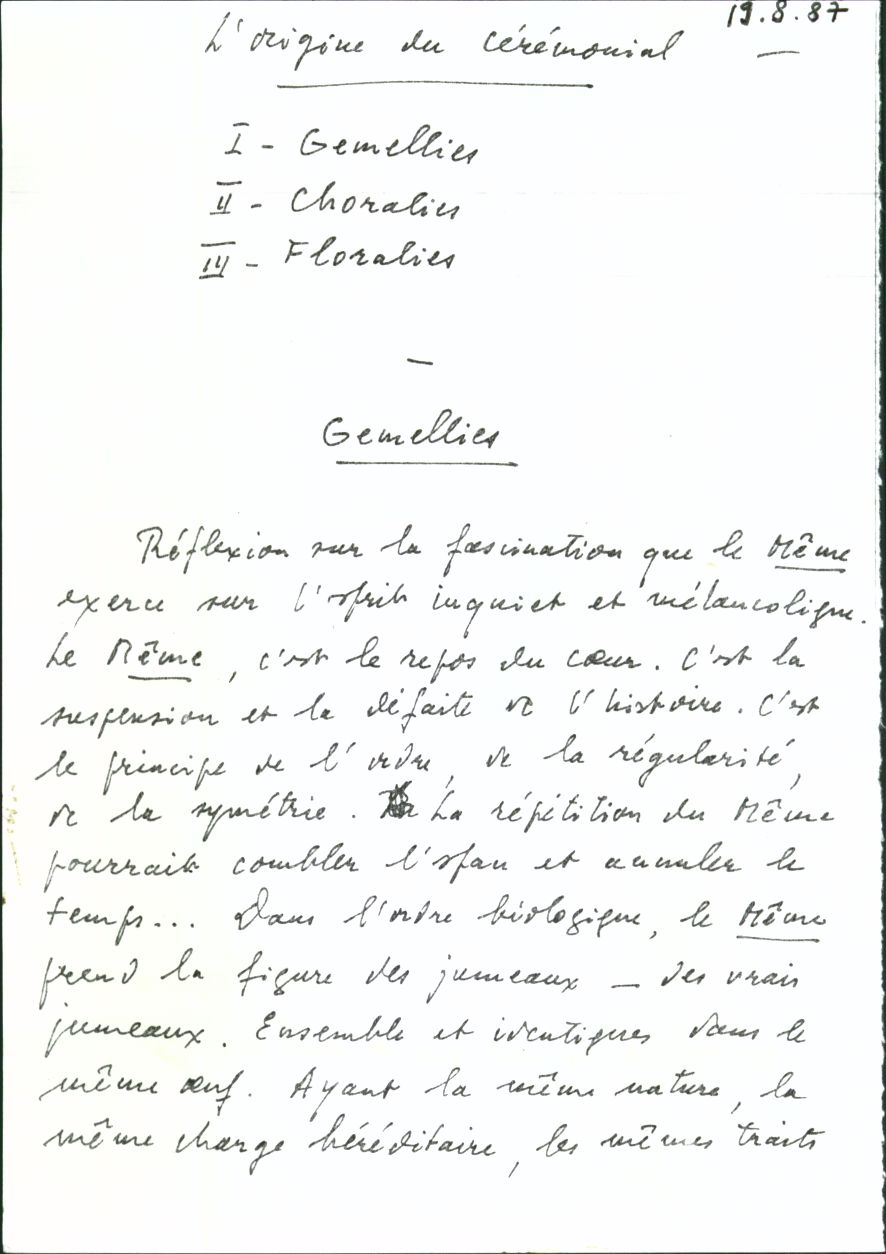 19.8.87
L'origine du cérémonial
I - Gemellies
II - Choralies
III - Floralies
Gemellies
Réflexion sur la fascination que le Même
exerce sur l'esprit inquiet et mélancolique.
Le Même, c'est le repos du cœur. C'est la
suspension et la défaite de l'histoire. C'est
le principe de l'ordre, de la régularité,
de la symétrie. La répétition du Même
pourrait combler l'espace et annuler le
temps... Dans l'ordre biologique, le Même
prend la figure des jumeaux — des vrais
jumeaux. Ensemble et identiques dans le
même œuf. Ayant la même nature, la
même charge héréditaire, les mêmes traits